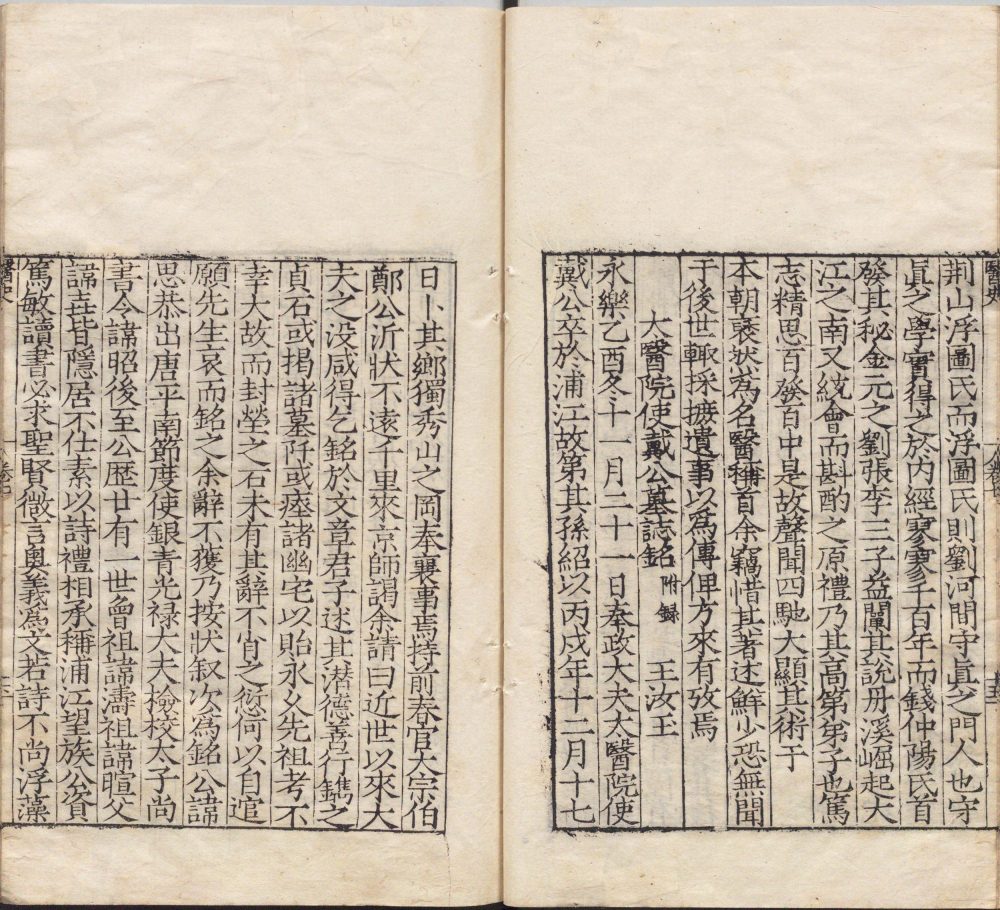 荆山浮圖氏而浮圖氏則劉河間守眞之門人也守
眞之學實得之於内經寥寥千百年而錢仲陽氏首
發其秘金元之劉張李三子益闡其說丹溪崛起大
江之南又統會而斟酌之原禮乃其高第弟子也篤
志精思百發百中是故聲聞四馳大顯其術于
本朝裦然為名醫稱首余竊惜其著述鮮少恐無聞
于後世輙採摭遺事以爲傳俾方來有攷焉
太醫院使戴公墓誌銘 附録 王汝玉
永樂乙酉冬十一月二十一日奉政大夫太醫院使
戴公卒於浦江故第其孫紹以丙戍年十二月十七
日卜其鄉獨秀山之岡奉襄事焉持前春官大宗伯
鄭公沂狀不遠千里來京師謁余請曰近世以來大
夫之没咸得乞銘於文章君子述其潜德善行鐫之
貞石或揭諸墓阡或瘞諸幽宅以貽永乆先祖考不
幸大故而封塋之石未有其辭不肖之愆何以自逭
願先生哀而銘之余辭不獲乃按狀叙次為銘公諱
思恭出唐平南節度使銀青光禄大夫檢校太子尚
書今諱昭後至公歴廿有一世曾祖諱濤祖諱暄父
諱垚皆隱居不仕素以詩禮相承稱浦江望族公資
篤敏讀書必求聖賢微言奥義爲文若詩不尚浮藻